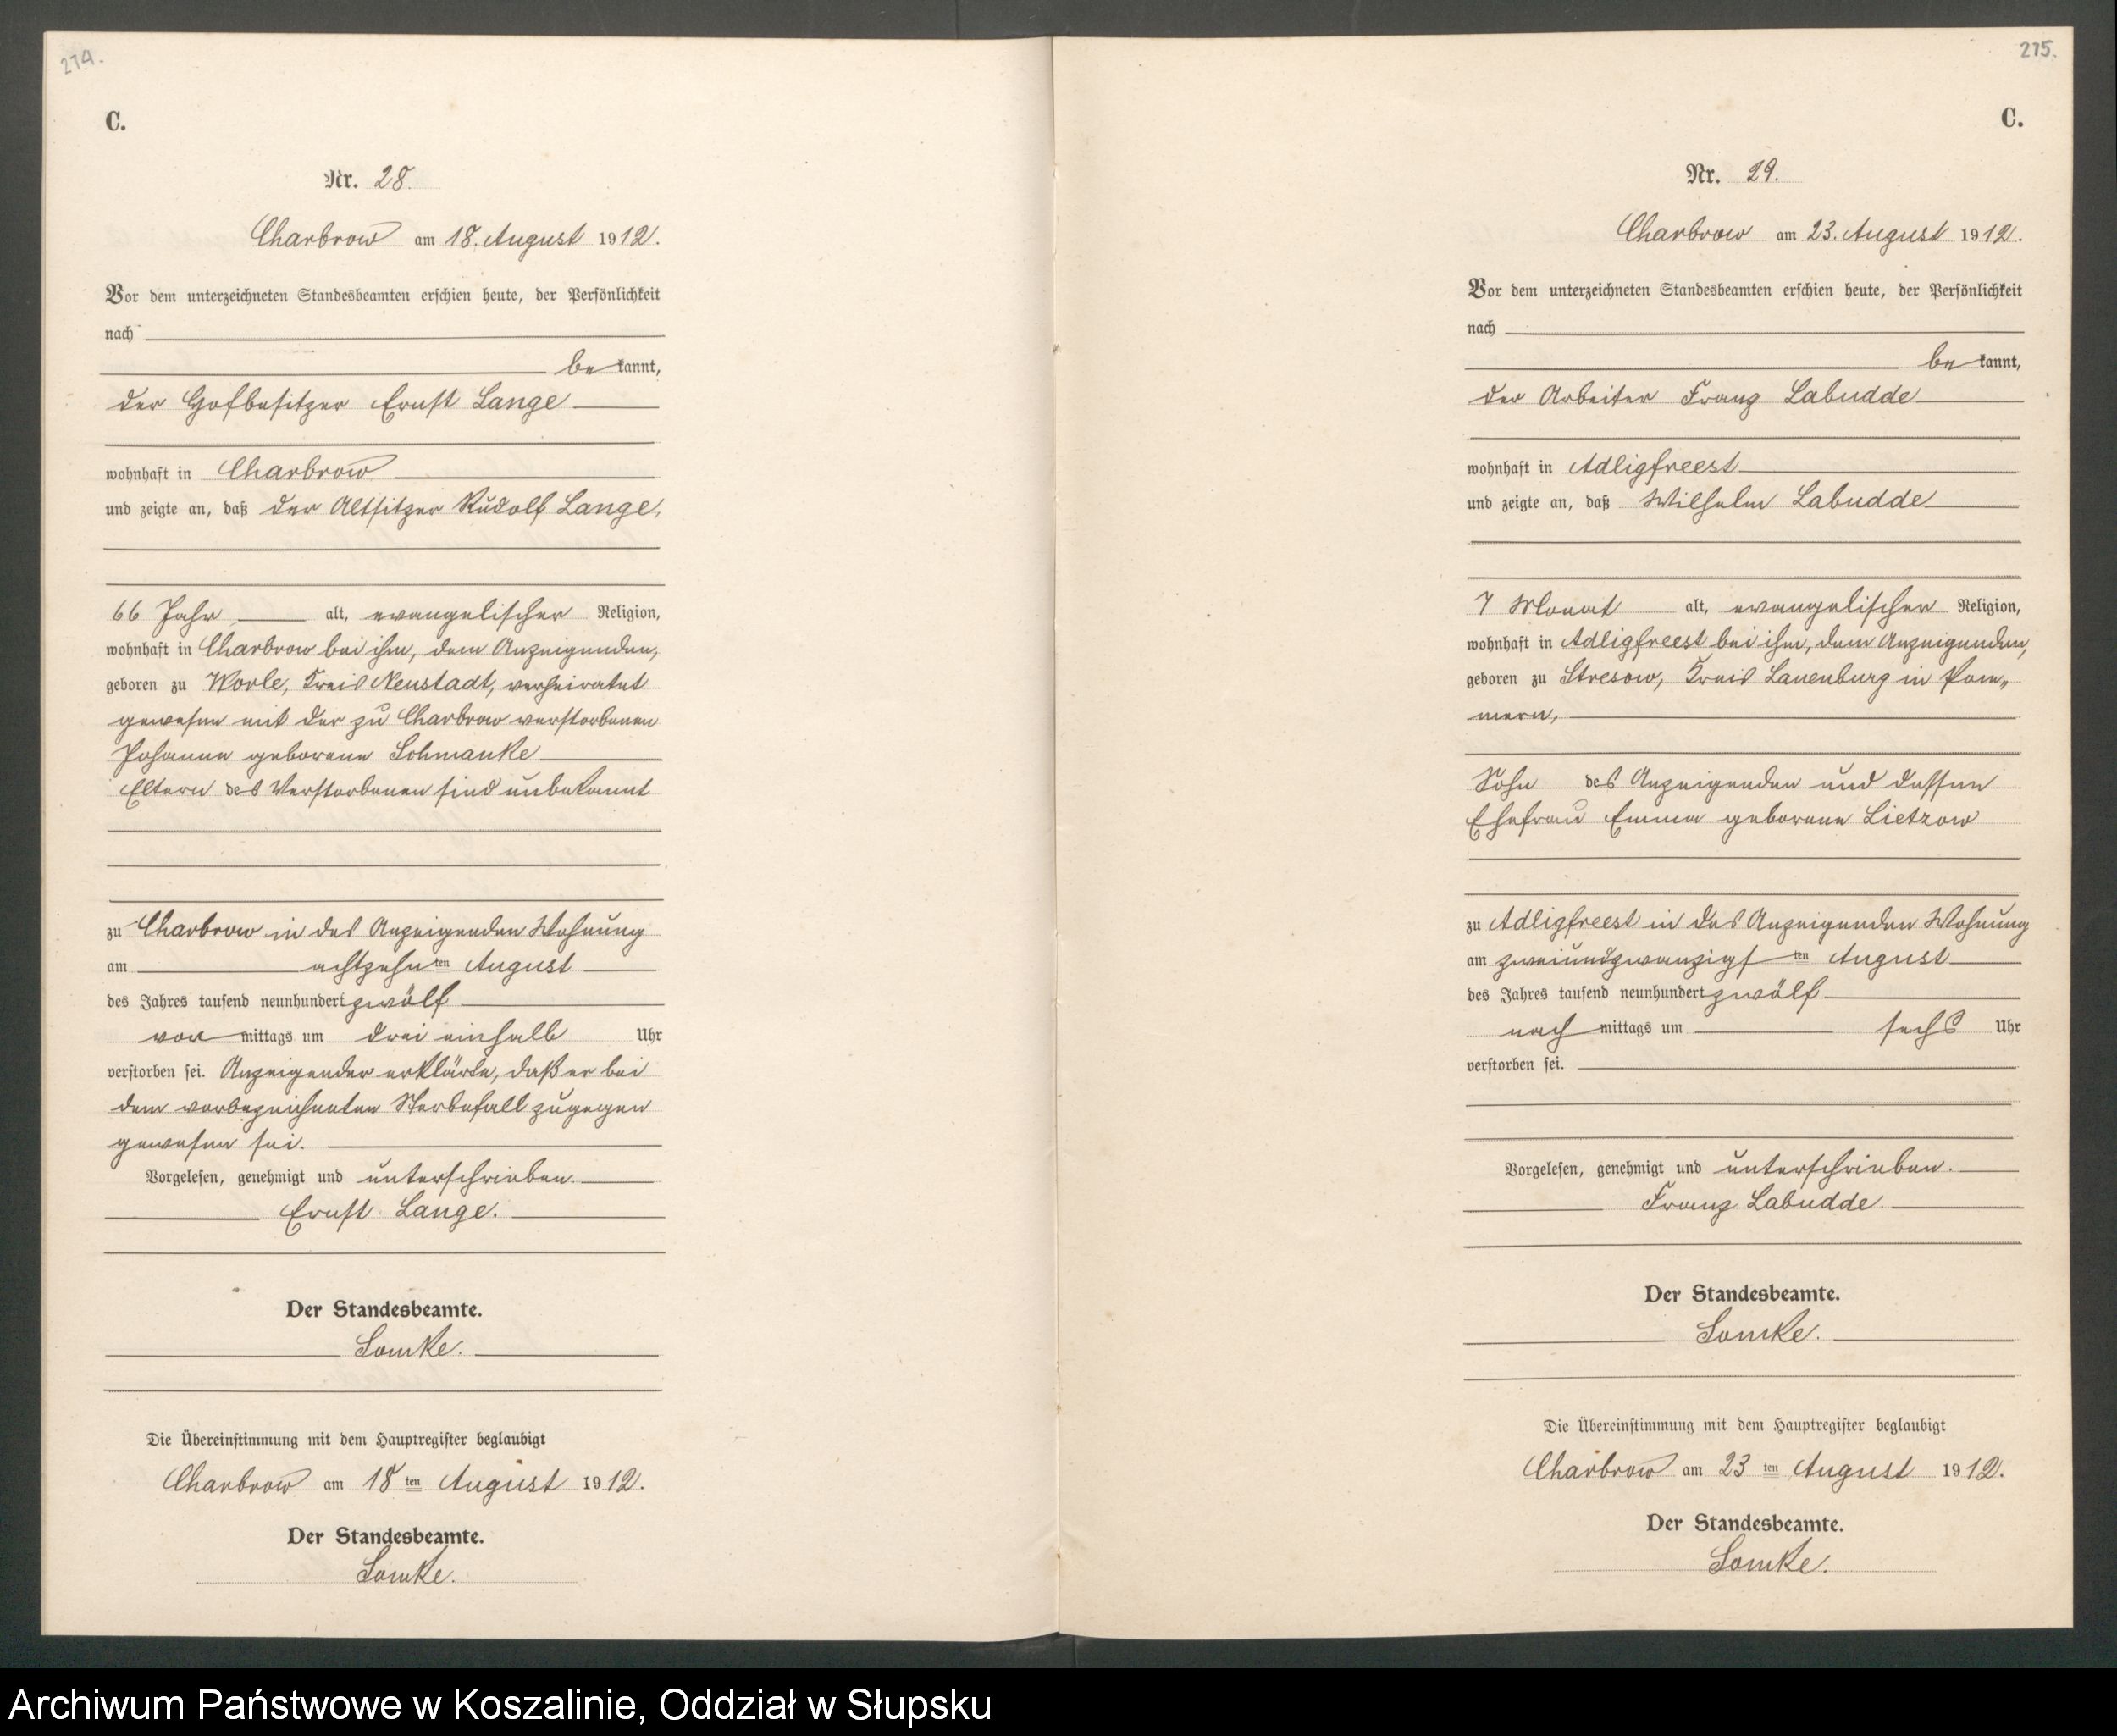 274.
C.
Nr. 28.
Charbrow am 18. August 1912.
Vor dem unterzeichneten Standesbeamten erschien heute, der Persönlichkeit
nach
be kannt,
der Hofbesitzer Ernst Lange
wohnhaft in Charbrow
und zeigte an, daß der Altsitzer Rudolf Lange,
66 Jahr alt, evangelischer Religion,
wohnhaft in Charbrow bei ihm, dem Anzeigenden,
geboren zu Worle, Kreis Neustadt, verheiratet
gewesen mit der zu Charbrow verstorbenen
Johanne geborene Schmanke
Eltern des Verstorbenen sind unbekannt
zu Charbrow in des Anzeigenden Wohnung
am achtzehnten August
des Jahres tausend neunhundert zwölf
vor mittags um drei einhalb Uhr
verstorben sei. Anzeigender erklärte, daß er bei
dem vorbezeichneten Sterbefall zugegen
gewesen sei.
Vorgelesen, genehmigt und unterschrieben.
Ernst Lange.
Der Standesbeamte.
Lomke.
Die Übereinstimmung mit dem Hauptregister beglaubigt
Charbrow am 18 ten August 1912.
Der Standesbeamte.
Lomke.
275.
C.
Nr. 29.
Charbrow am 23. August 1912.
Vor dem unterzeichneten Standesbeamten erschien heute, der Persönlichkeit
nach
be kannt,
der Arbeiter Franz Labudde
wohnhaft in Adligfreest
und zeigte an, daß Wilhelm Labudde
7 Monat alt, evangelischer Religion,
wohnhaft in Adligfreest bei ihm, dem Anzeigenden,
geboren zu Stresow, Kreis Lauenburg in Pom„
mern,
Sohn des Anzeigenden und dessen
Ehefrau Emma geborene Lietzow
zu Adligfreest in des Anzeigenden Wohnung
am zweiundzwanzigsten August
des Jahres tausend neunhundert zwölf
nach mittags um sechs Uhr
verstorben sei.
Vorgelesen, genehmigt und unterschrieben.
Franz Labudde.
Der Standesbeamte.
Lomke.
Die Übereinstimmung mit dem Hauptregister beglaubigt
Charbrow am 23 ten August 1912.
Der Standesbeamte.
Lomke.
Archiwum Państwowe w Koszalinie, Oddział w Słupsku